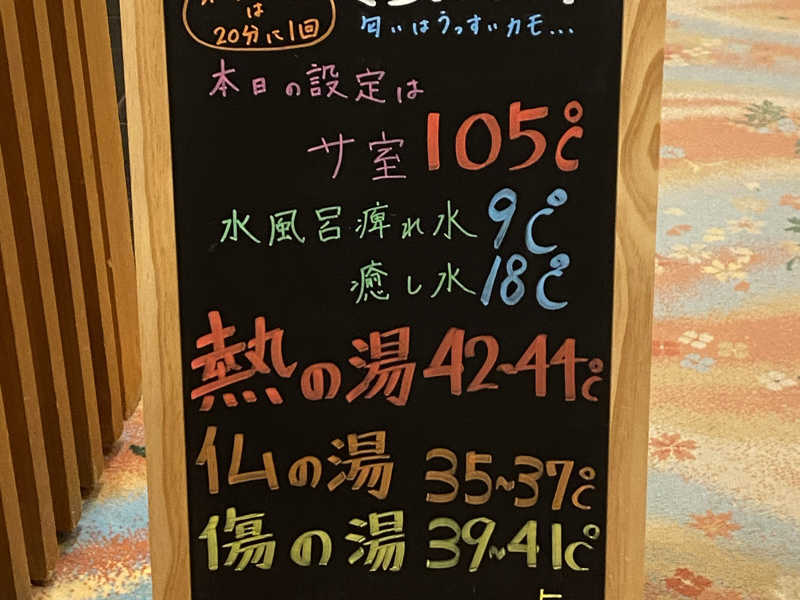 は
20分に1回
匂いはうっすいカモ...
本日の設定は
サ室 105℃
水風呂痺れ水 9℃
癒し水 18℃
熱の湯 42~44℃
仏の湯 35~37℃
傷の湯 39~41℃